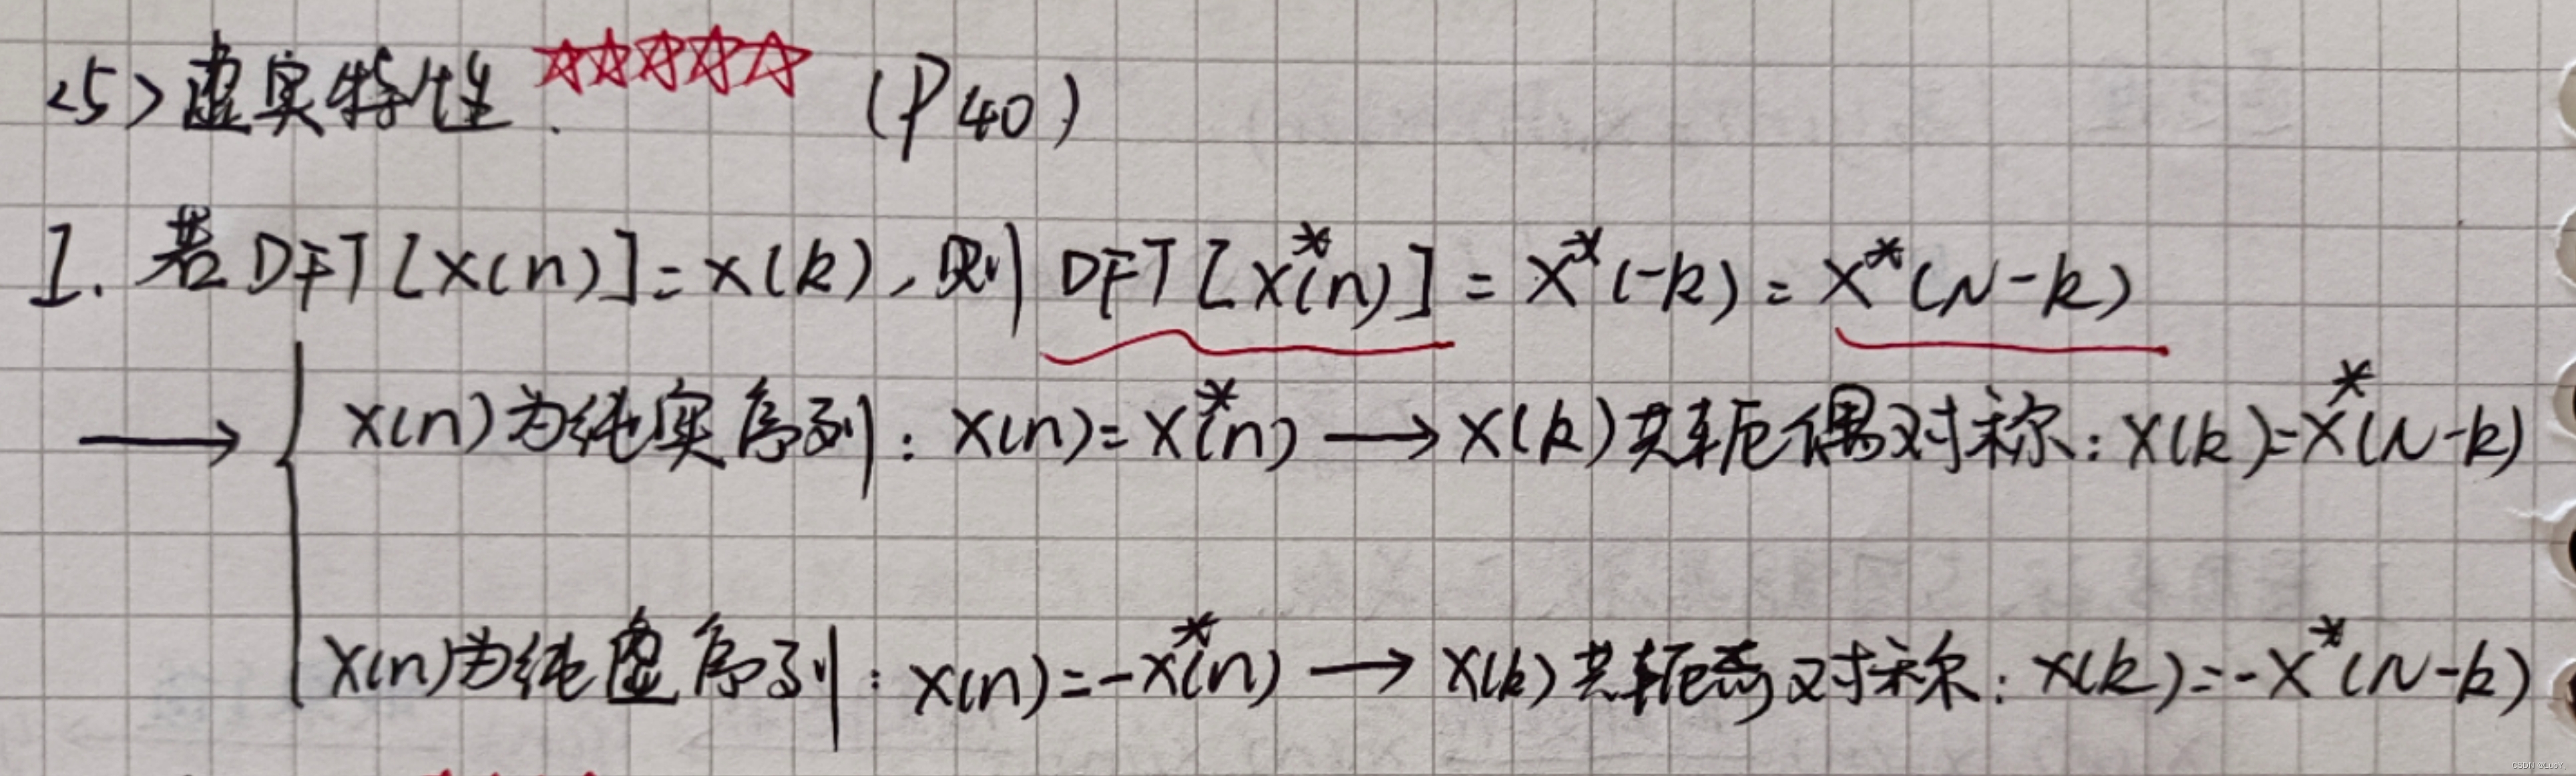 <5>虚实特性. ☆☆☆☆☆ (P40)
I. 若DFT[x(n)]=X(k),则DFT[x*(n)]=X*(-k)=X*(N-k)
→ { x(n)为纯实序列: x(n)=x*(n) → X(k)共轭偶对称: X(k)=X*(N-k)
x(n)为纯虚序列: x(n)=-x*(n) → X(k)共轭奇对称: X(k)=-X*(N-k)